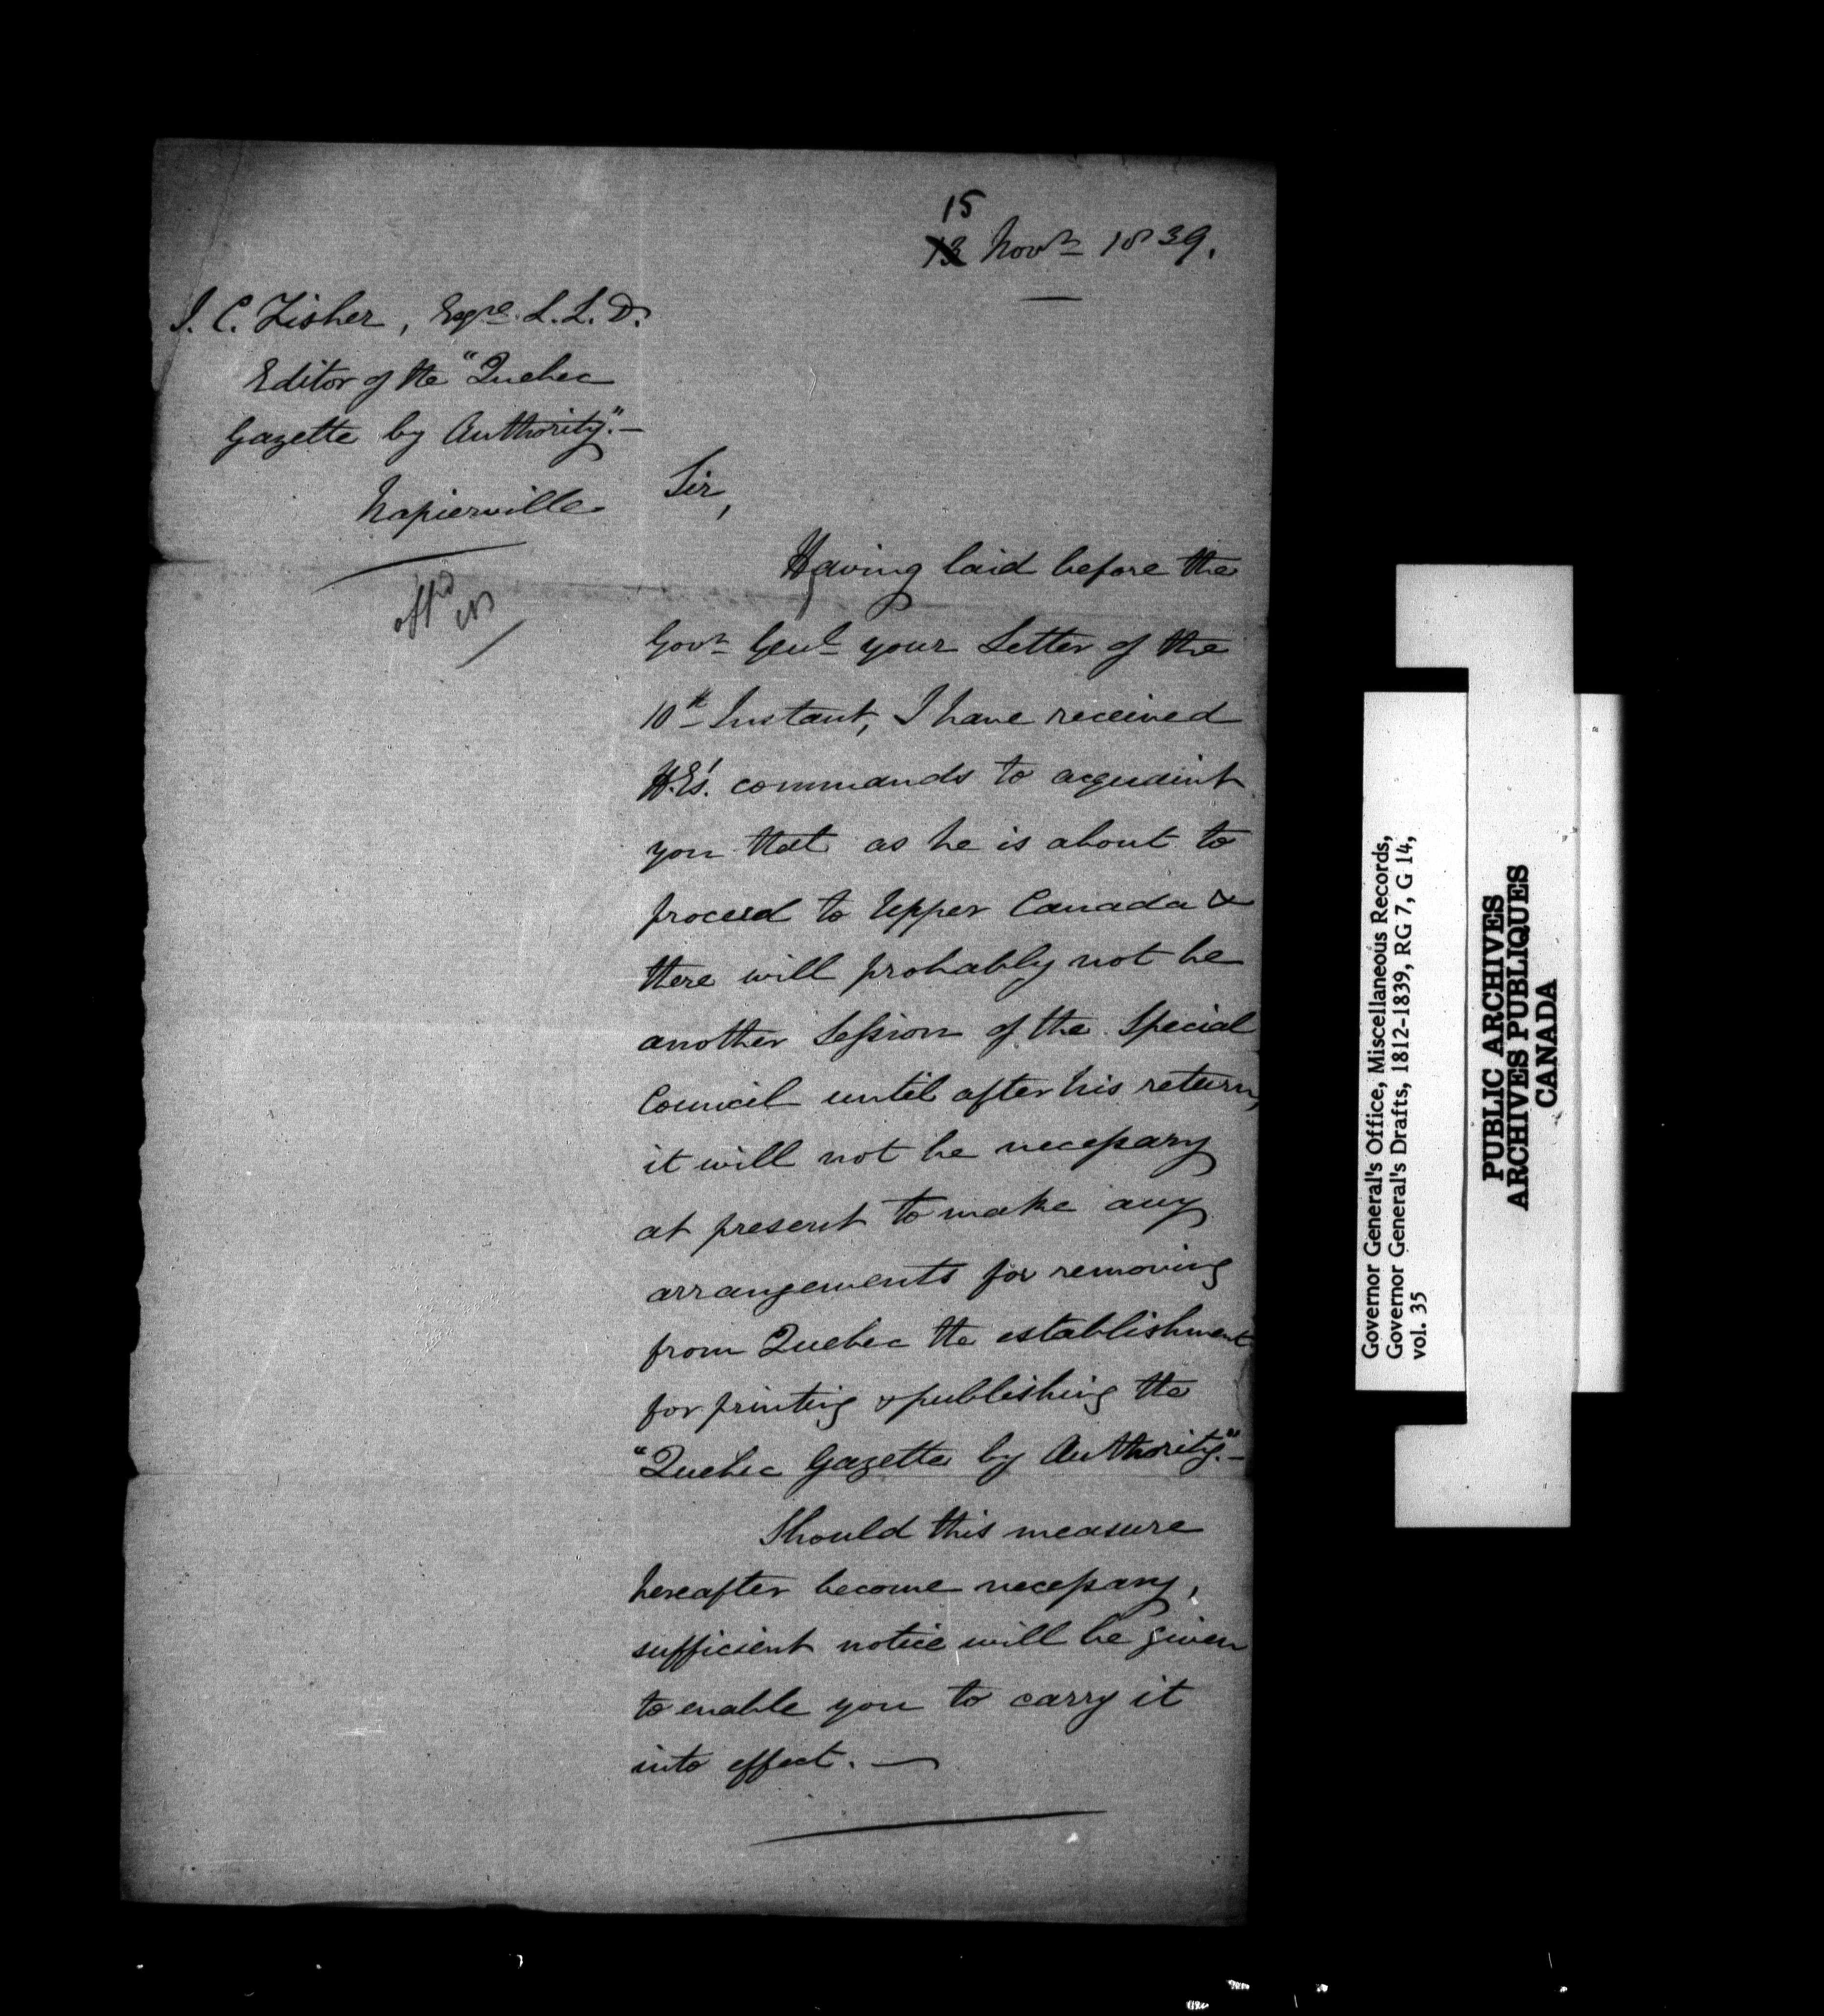 15
13 Novr 1839.
J. C. Fisher, Esqre. L.L.D.
Editor of the "Quebec
Gazette by Authority."—
Napierville
Sir,
Having laid before the
Govr Genl your Letter of the
10th Instant, I have received
H.E's. commands to acquaint
you that as he is about to
proceed to Upper Canada &
there will probably not be
another Session of the Special
Council until after his return,
it will not be necessary
at present to make any
arrangements for removing
from Quebec the establishment
for printing & publishing the
"Quebec Gazette by Authority."—
Should this measure
hereafter become necessary,
sufficient notice will be given
to enable you to carry it
into effect. —
Governor General's Office, Miscellaneous Records,
Governor General's Drafts, 1812-1839, RG 7, G 14,
vol. 35
PUBLIC ARCHIVES
ARCHIVES PUBLIQUES
CANADA